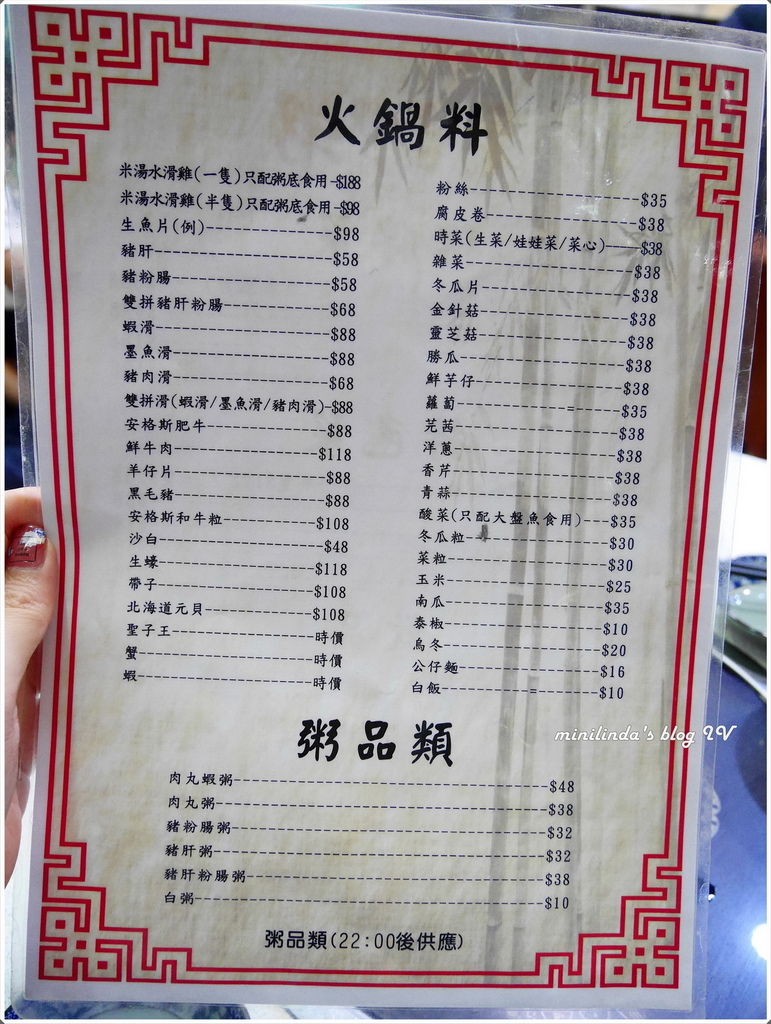 火鍋料
米湯水滑雞(一隻)只配粥底食用-$188
米湯水滑雞(半隻)只配粥底食用-$98
生魚片(例)----------------$98
豬肝----------------$58
豬粉腸----------------$58
雙拼豬肝粉腸----------------$68
蝦滑----------------$88
墨魚滑----------------$88
豬肉滑----------------$68
雙拼滑(蝦滑/墨魚滑/豬肉滑)-$88
安格斯肥牛----------------$88
鮮牛肉----------------$118
羊仔片----------------$88
黑毛豬----------------$88
安格斯和牛粒----------------$108
沙白----------------$48
生蠔----------------$118
帶子----------------$108
北海道元貝----------------$108
聖子王----------------時價
蟹----------------時價
蝦----------------時價
粉絲----------------$35
腐皮卷----------------$38
時菜(生菜/娃娃菜/菜心)----$38
雜菜----------------$38
冬瓜片----------------$38
金針菇----------------$38
靈芝菇----------------$38
勝瓜----------------$38
鮮芋仔----------------$38
蘿蔔----------------$35
芫茜----------------$38
洋蔥----------------$38
香芹----------------$38
青蒜----------------$38
酸菜(只配大盤魚食用)---$35
冬瓜粒----------------$30
菜粒----------------$30
玉米----------------$25
南瓜----------------$35
泰椒----------------$10
烏冬----------------$20
公仔麵----------------$16
白飯----------------$10
粥品類
肉丸蝦粥----------------$48
肉丸粥----------------$38
豬粉腸粥----------------$32
豬肝粥----------------$32
豬肝粉腸粥----------------$38
白粥----------------$10
粥品類(22:00後供應)
minilinda's blog IV